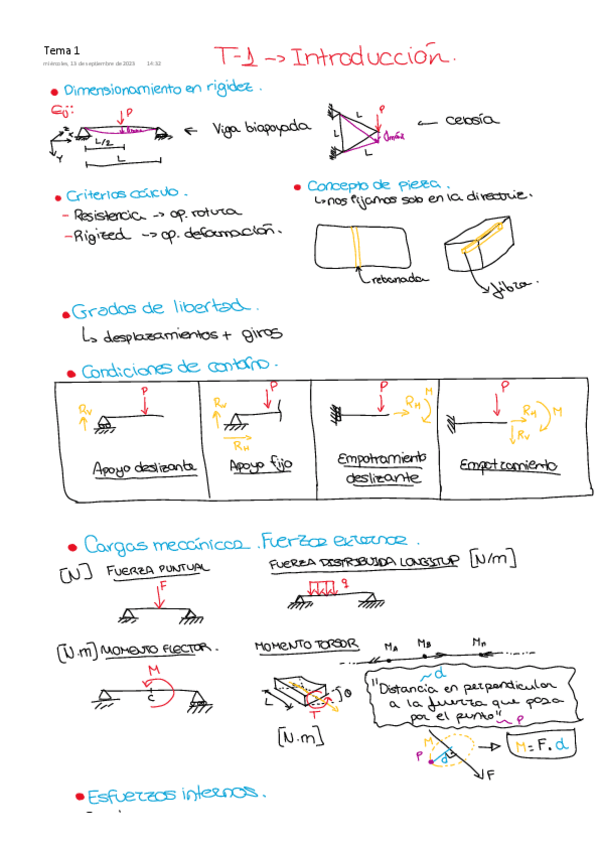 Tema 1
miércoles, 13 de septiembre de 2023 14:32
T-1 -> Introducción.
• Dimensionamiento en rigidez.
Ej:
P
L/2
L
Z
Y
← Viga biapoyada
P
L
L
L
← celosía
• Criterios cálculo.
- Resistencia -> op. rotura
- Rigized -> op. deformación.
• Concepto de pieza.
↳ nos fijamos solo en la directriz.
rebanada
fibra.
• Grados de libertad.
↳ desplazamientos + giros
• Condiciones de contorno.
P
RV
Apoyo deslizante
P
RV
RH
Apoyo fijo
P
RH
M
Empotramiento
deslizante
P
RH
M
RV
Empotramiento
• Cargas mecánicas. Fuerzas externas.
[N] FUERZA PUNTUAL
F
FUERZA DISTRIBUIDA LONGITUD [N/m]
q
[N.m] MOMENTO FLECTOR.
M
C
MOMENTO TORSOR
L
T
θ
[N.m]
MA MB Mn
~ d
"Distancia en perpendicular
a la fuerza que pasa
por el punto" ~ P
M
P
d
F
-> M = F. d
• Esfuerzos internos.